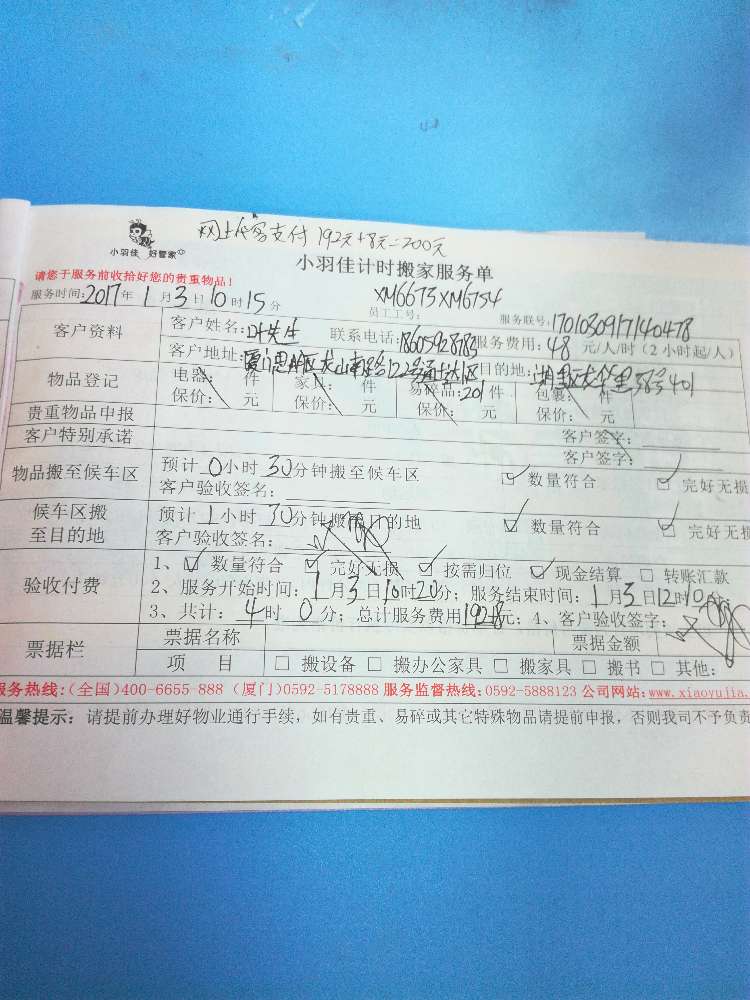 网上代客支付 192元+8元=200元
小羽佳 好管家
小羽佳计时搬家服务单
请您于服务前收拾好您的贵重物品!
服务时间:2017年1月3日10时15分 员工工号: XM6675 XM6754 服务联号:1701030917140478
客户资料 客户姓名:叶先生 联系电话:18605928783 服务费用:48元/人/时(2小时起/人)
客户地址:厦门思明区 目的地:湖里区 38号401
物品登记 电器: 件 家具: 件 易碎品:201件 包裹: 件
保价: 元 保价: 元 保价: 元 保价: 元
贵重物品申报 客户签字:
客户特别承诺 客户签字:
物品搬至候车区 预计0小时30分钟搬至候车区 ☑ 数量符合 ☑ 完好无损
客户验收签名:
候车区搬至目的地 预计1小时30分钟搬至目的地 ☑ 数量符合 ☑ 完好无损
客户验收签名:
验收付费 1、☑ 数量符合 ☑ 完好无损 ☑ 按需归位 ☑ 现金结算 □ 转账汇款
2、服务开始时间:1月3日10时20分;服务结束时间:1月3日12时10分;
3、共计:4时0分;总计服务费用192+8元;4、客户验收签字:
票据栏 票据名称 票据金额
项 目 □ 搬设备 □ 搬办公家具 □ 搬家具 □ 搬书 □ 其他:
服务热线:(全国)400-6655-888 (厦门)0592-5178888 服务监督热线:0592-5888123 公司网站:www.xiaoyujia.
温馨提示:请提前办理好物业通行手续,如有贵重、易碎或其它特殊物品请提前申报,否则我司不予负责